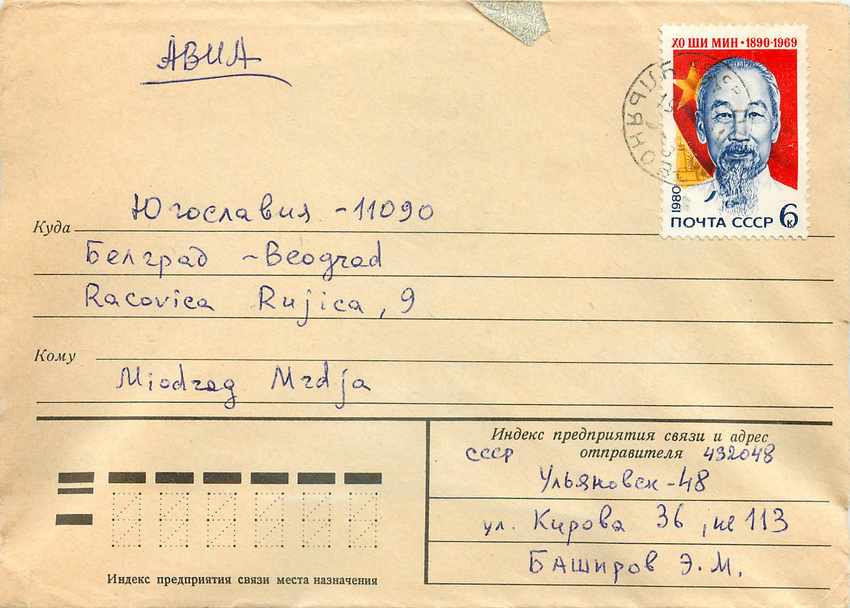 АВИА
ХО ШИ МИН • 1890-1969
1980
ПОЧТА СССР 6 к
Куда Югославия -11090
Белград ~Beograd
Racovica Rujica, 9
Кому
Miodrag Mrdja
Индекс предприятия связи и адрес
отправителя 432048
СССР
Ульяновск-48
ул. Кирова 36, 113
Баширов Э.М.
Индекс предприятия связи места назначения